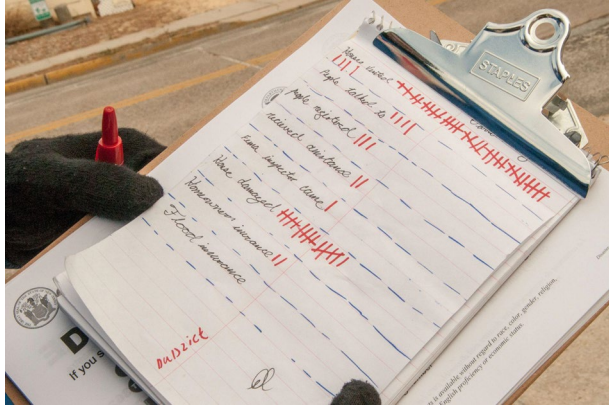 STAPLES
House visited
People talked to
People registered
received assistance
Fema inspector came
House damaged
Homeowners insurance
Flood insurance
DUBZict
D
If you s
is available without regard to race, color, gender, religion,
English proficiency or economic status.